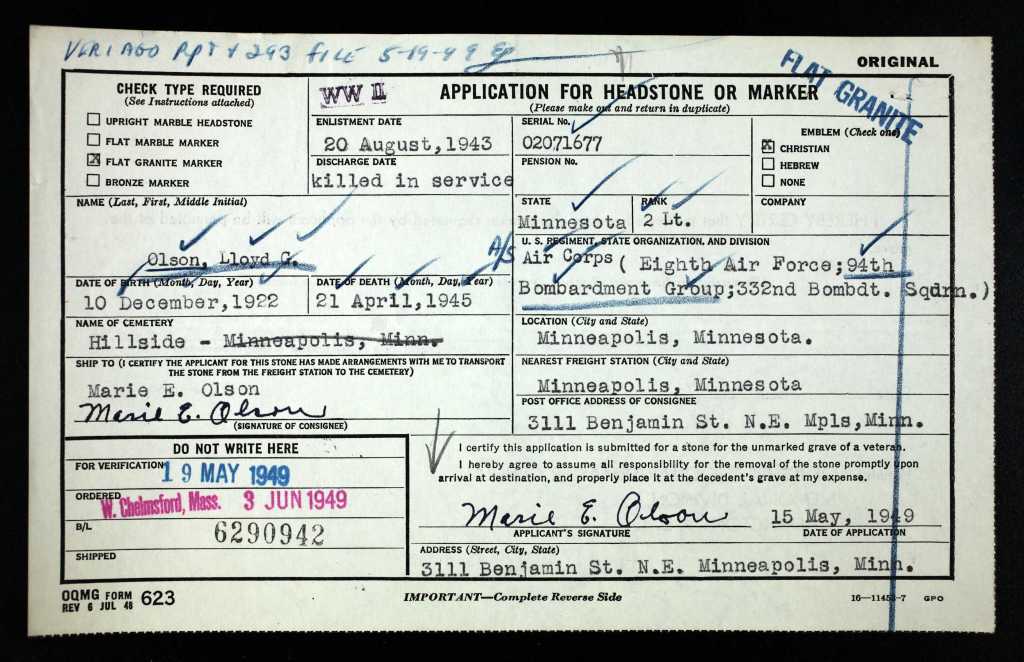 VERIAGO Rpt + 293 FILE 5-19-49
ORIGINAL
FLAT GRANITE
CHECK TYPE REQUIRED
(See Instructions attached)
UPRIGHT MARBLE HEADSTONE
FLAT MARBLE MARKER
X FLAT GRANITE MARKER
BRONZE MARKER
WW II
APPLICATION FOR HEADSTONE OR MARKER
(Please make out and return in duplicate)
ENLISTMENT DATE
20 August,1943
DISCHARGE DATE
killed in service
SERIAL No.
02071677
PENSION No.
EMBLEM (Check one)
X CHRISTIAN
HEBREW
NONE
STATE
Minnesota
RANK
2 Lt.
COMPANY
NAME (Last, First, Middle Initial)
Olson, Lloyd G.
A/S
U. S. REGIMENT, STATE ORGANIZATION, AND DIVISION
Air Corps ( Eighth Air Force;94th
Bombardment Group;332nd Bombdt. Sqdrn.)
DATE OF BIRTH (Month, Day, Year)
10 December,1922
DATE OF DEATH (Month, Day, Year)
21 April,1945
NAME OF CEMETERY
Hillside - Minneapolis, Minn.
LOCATION (City and State)
Minneapolis, Minnesota.
SHIP TO (I CERTIFY THE APPLICANT FOR THIS STONE HAS MADE ARRANGEMENTS WITH ME TO TRANSPORT
THE STONE FROM THE FREIGHT STATION TO THE CEMETERY)
Marie E. Olson
Marie E. Olson
(SIGNATURE OF CONSIGNEE)
NEAREST FREIGHT STATION (City and State)
Minneapolis, Minnesota
POST OFFICE ADDRESS OF CONSIGNEE
3111 Benjamin St. N.E. Mpls,Minn.
DO NOT WRITE HERE
FOR VERIFICATION
19 MAY 1949
ORDERED
W. Chelmsford, Mass. 3 JUN 1949
B/L
6290942
SHIPPED
I certify this application is submitted for a stone for the unmarked grave of a veteran.
I hereby agree to assume all responsibility for the removal of the stone promptly upon
arrival at destination, and properly place it at the decedent's grave at my expense.
Marie E. Olson
APPLICANT'S SIGNATURE
15 May, 1949
DATE OF APPLICATION
ADDRESS (Street, City, State)
3111 Benjamin St. N.E. Minneapolis, Minn.
OQMG FORM
REV 6 JUL 48
623
IMPORTANT—Complete Reverse Side
GPO